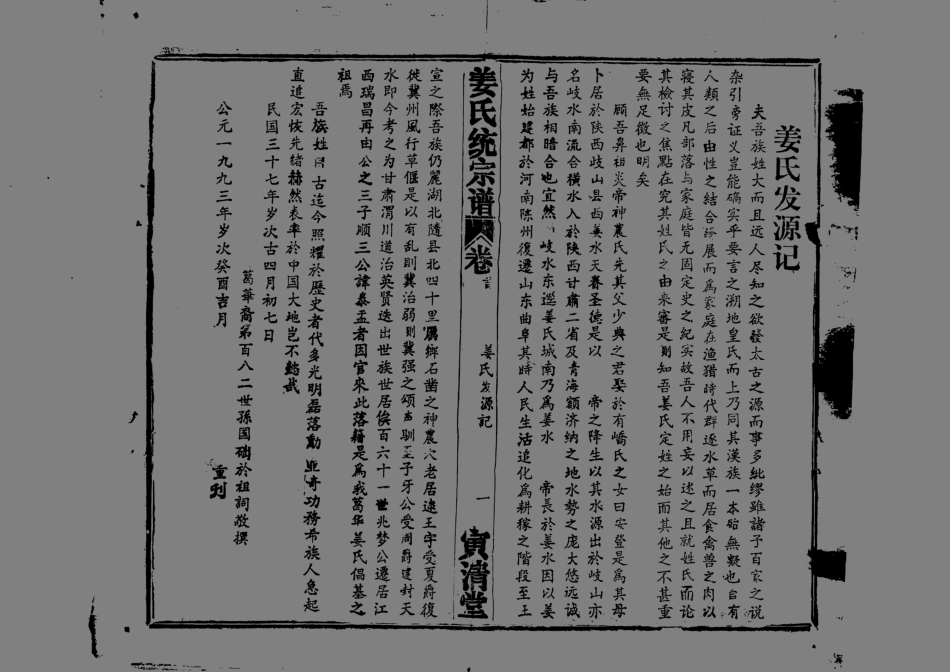 姜氏发源记
夫吾族姓大而且远人尽知之欲發太古之源而事多紕缪雖諸子百家之说
杂引旁证义豈能碻实乎要言之溯地皇氏而上乃同其漢族一本殆無疑也自有
人類之后由性之结合發展而爲家庭在渔猎時代群逐水草而居食禽兽之肉以
寝其皮凡部落与家庭皆无固定史之纪实故吾人不用妄以述之且就姓氏而论
其檢讨之焦點在究其姓氏之由来審是则知吾姜氏定姓之始而其他之不甚重
要無足徵也明矣
顾吾鼻祖炎帝神農氏先其父少典之君娶於有嶠氏之女曰安登是爲其母
卜居於陕西歧山县西姜水天眷圣德是以 帝之降生以其水源出於歧山亦
名歧水南流合横水入於陕西甘肃二省及青海额济纳之地水勢之庞大悠远诚
与吾族相暗合也宜然 歧水东逕姜氏城南乃爲姜水 帝長於姜水因以姜
为姓始建都於河南陈州復遷山东曲阜其時人民生活追化爲耕稼之階段至王
姜氏统宗谱 卷首
姜氏发源记
一
寅清堂
宣之際吾族仍麗湖北隨县北四十里厲鄉石凿之神農穴老居逮王宇受夏爵復
徙冀州風行草偃是以有乱則冀治弱则冀强之頌 驯至子牙公受周爵建封天
水即今考之为甘肅渭川道治英贤迭出世族世居俟百六十一世兆梦公遷居江
西瑞昌再由公之三子顺三公諱泰孟者因官來此落籍是爲我葛华姜氏倡基之
祖焉
吾族姓自古迄今照耀於歷史者代多光明磊落勳业奇功務希族人急起
直追宏恢先绪赫然表率於中国大地岂不懿哉
民国三十七年岁次古四月初七日
葛華裔第百八二世孫国础於祖詞敬撰
公元一九九三年岁次癸酉吉月
重刋